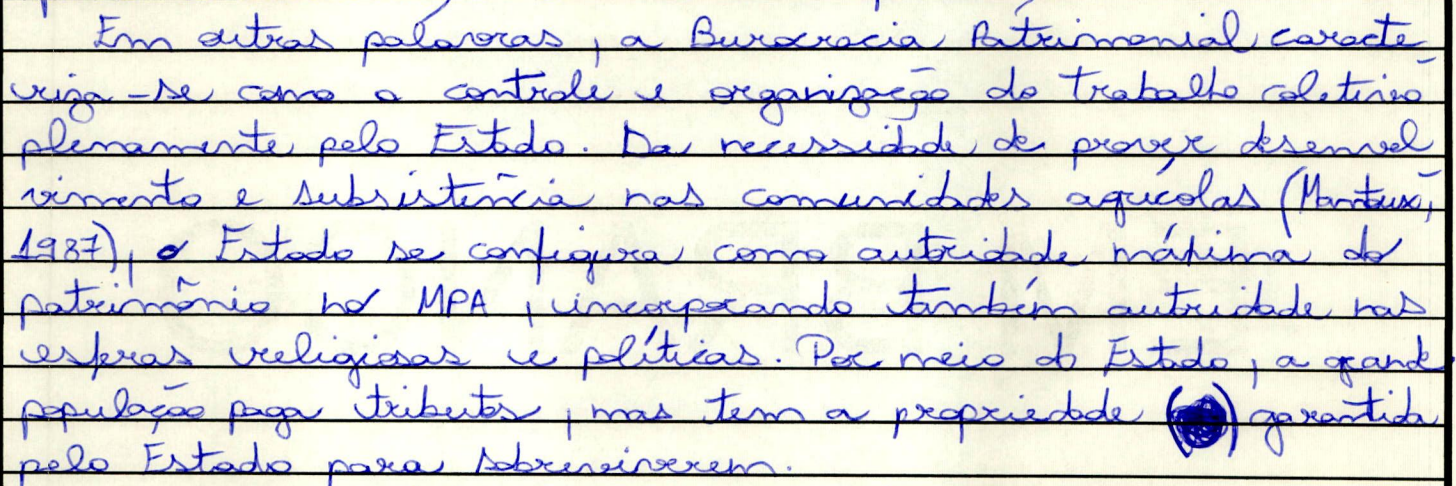 Em outras palavras, a Burocracia Patrimonial caracte
riza-se como o controle e organização do trabalho coletivo
plenamente pelo Estado. Da necessidade de prover desenvol
vimento e subsistência nas comunidades agrícolas (Mantoux,
1987), o Estado se configura como autoridade máxima do
patrimônio no MPA, incorporando também autoridade nas
esferas religiosas e políticas. Por meio do Estado, a grande
população paga tributos, mas tem a propriedade garantida
pelo Estado para sobreviverem.